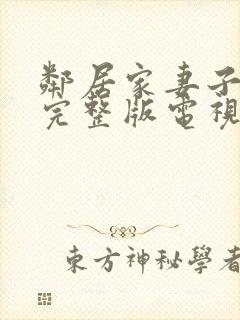 鄰居家妻子
完整版電視
東方神秘學者